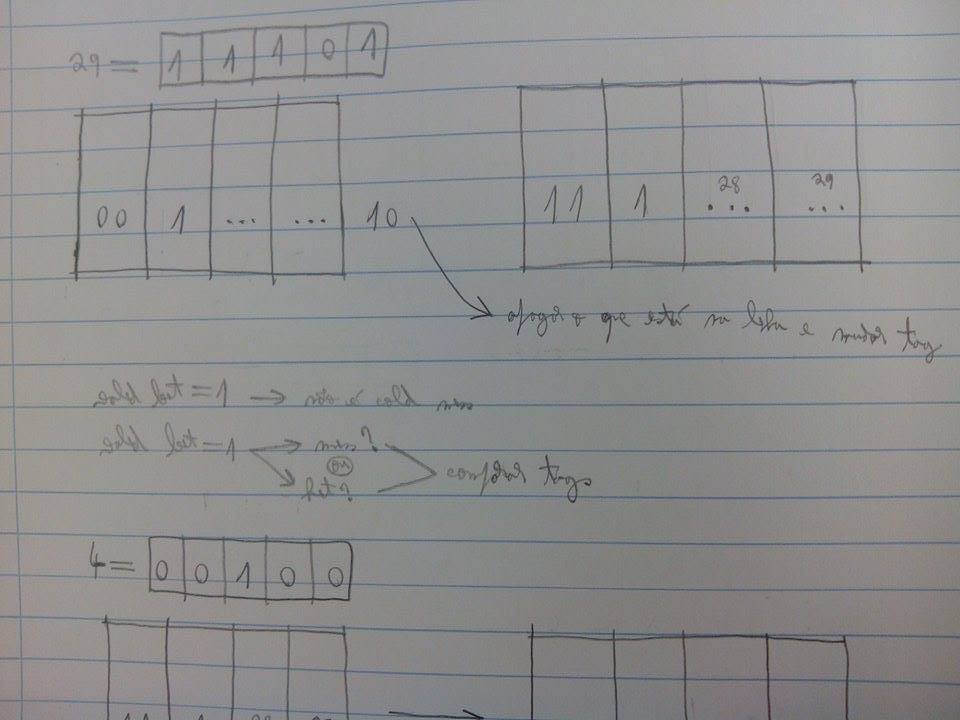 29 = 1 1 1 0 1
00 1 ... ... 10
11 1 28 ... 29 ...
→ apagar o que está na linha e mudar tag
valid bit = 1 → não é cold miss
valid bit = 1 → miss?
ou
→ hit?
comparar tags
4 = 0 0 1 0 0
11 1